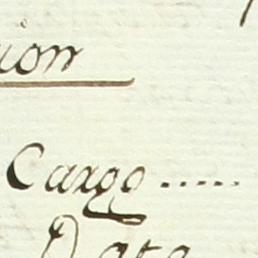 ion
Cargo .....
Data